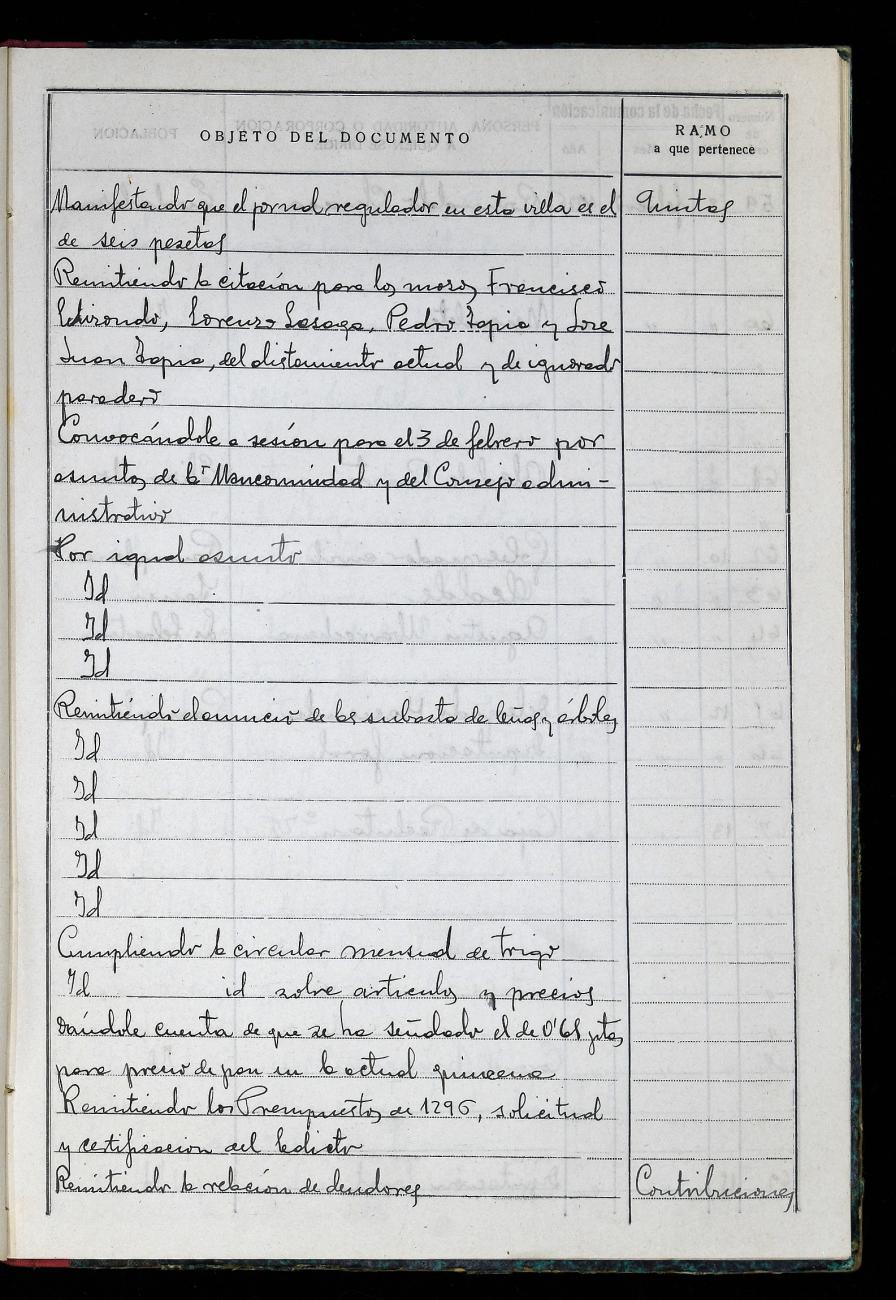 OBJETO DEL DOCUMENTO
RAMO
a que pertenece
Manifestando que el jornal regulador en esta villa es el Quintas
de seis pesetas
Remitiendo la citación para los mozos Francisco
Lorenzo Lasaga, Pedro Tapia y Jose
Juan Tapia, del alistamiento actual y de ignorado
paradero
Convocándole a sesión para el 3 de febrero por
asuntos de la Mancomunidad y del Consejo admi-
nistrativo
Por igual asunto
Id
Id
Id
Remitiendo el anuncio de las subasta de leñas y árboles
Id
Id
Id
Id
Id
Cumpliendo la circular mensual de trigo
Id id sobre artículos y precios
Dándole cuenta de que se ha señalado el de 0'65 ptas
para precio de pan en la actual quincena
Remitiendo los Presupuestos de 1296, solicitud
y certificacion del Edicto
Remitiendo la relación de deudores Contribuciones